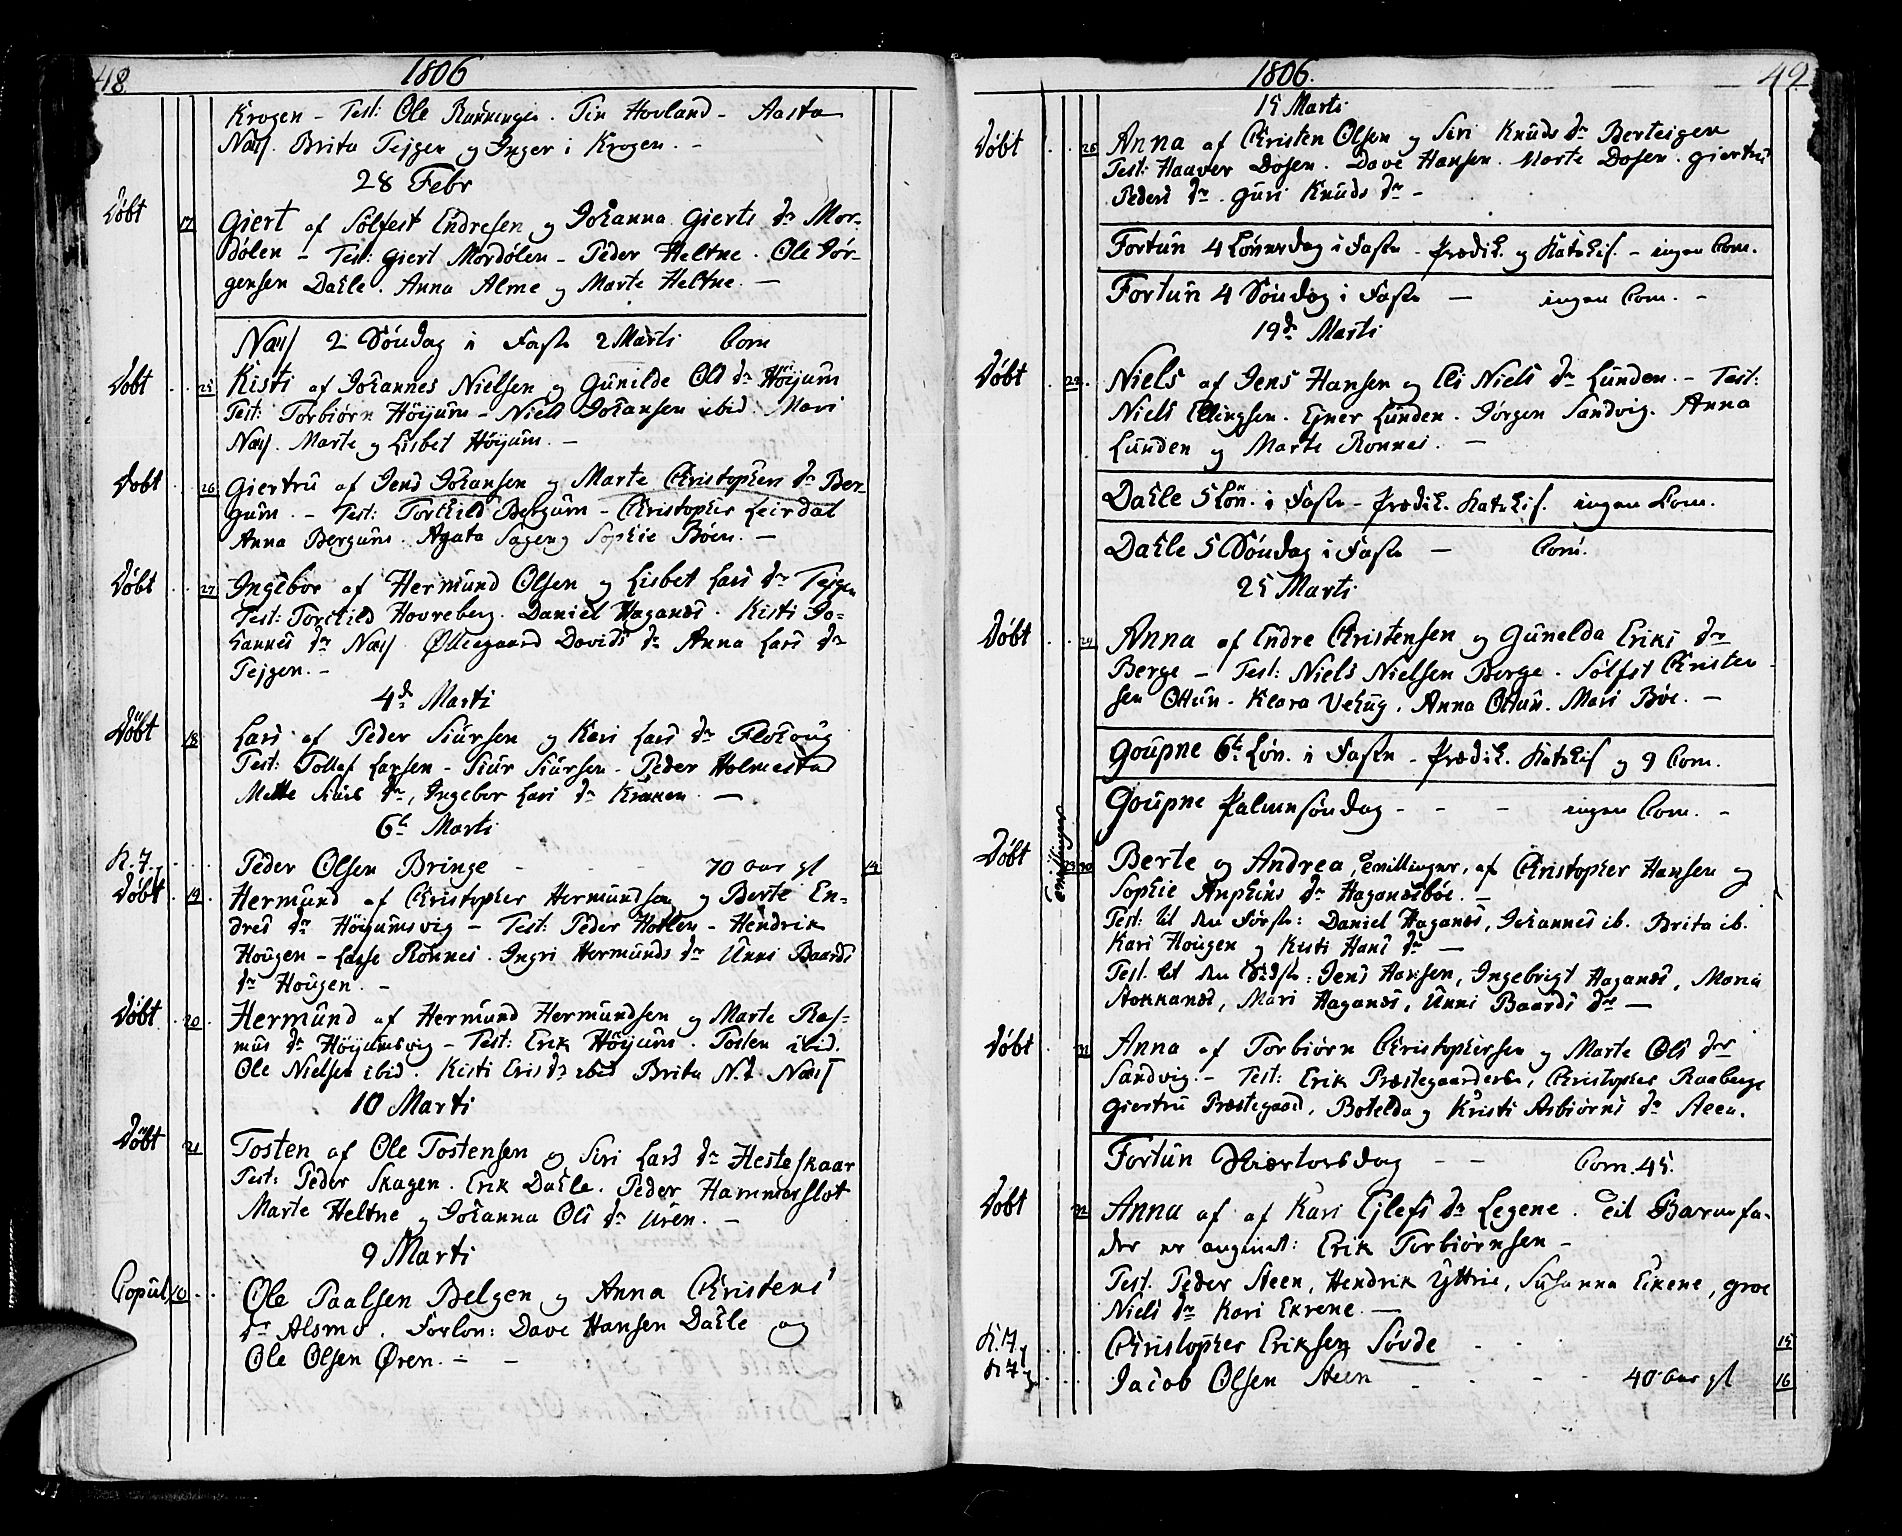 48 1806
Krogen – Test: Ole Rønningen. Tin Hovland – Aasta
Næss. Brita Tejgen og Inger i Krogen. –
28 Febr
Døbt 17 Giert af Sølfest Endresen og Johanna Gierts dr Mor-
dølen – Test: Giert Mordølen – Peder Heltne. Ole Jør-
gensen Dahle. Anna Alme og Marte Heltne. –
Næss 2 Søndag i Faste 2 Marti Com
Døbt 25 Kisti af Johannes Nielsen og Gunilde Ols dr Høijum
Test: Torbiørn Høijum – Niels Johansen ibid. Mari
Næss. Marte og Lisbet Høijum. –
Døbt 26 Giertru af Jens Johansen og Marte Christophers dr Ber-
gum. – Test: Torchild Bergum – Christopher Leirdal
Anna Bergum. Agata Sagen og Sophie Bøen. –
Døbt 27 Ingebor af Hermund Olsen og Lisbet Lars dr Tejgen
Test: Torchild Hovreberg. Daniel Haganæs. Kisti Jo-
hannes dr Næss Øllegaard Davids dr Anna Lars dr
Tejgen. –
4d Marti
Døbt 18 Lars af Peder Siursen og Kari Lars dr Flohoug
Test: Tollef Larsen – Siur Siursen – Peder Holmestad
Mette Siurs dr, Ingebor Lars dr Kroken –
6t Marti
K. 7. Peder Olsen Bringe – – 70 Aar gl 14
Døbt 19 Hermund af Christopher Hermundsen og Berte En-
dres dr Høijumsvig – Test: Peder Hotlen – Hendrik
Hougen – Lasse Rønnei. Ingri Hermunds dr Unni Baards
dr Hougen. –
Døbt 20 Hermund af Hermund Hermundsen og Marte Ras-
mus dr Høijumsvig – Test: Erik Høijum. Tosten ibid.
Ole Nielsen ibid. Kisti Eris dr ibid Brita N.d. Næss
10 Marti
Døbt 21 Tosten af Ole Tostensen og Siri Lars dr Hesteskaar
Test: Peder Skagen. Erik Dahle. Peder Hammerslot
Marte Heltne og Johanna Ols dr Uren. –
9 Marti
Copul 10 Ole Paalsen Belgen og Anna Christens
dr Alsmo. Forlov: Dave Hansen Dahle og
Ole Olsen Øren. – –
1806. 49
15 Marti
Døbt 28 Anna af Christen Olsen og Siri Knuds dr Berteigen
Test: Haaver Dosen. Dave Hansen. Marte Dosen. Giertru
Peders dr. Guri Knuds dr –
Fortun 4 Løverdag i Faste – Prædik. og Katekis. – ingen Com.
Fortun 4 Søndag i Faste – ingen Com. –
19d Marti
Døbt 22 Niels af Jens Hansen og Eli Niels dr Lunden. – Test:
Niels Ellingsen. Ejner Lunden. Jørgen Sandvig. Anna
Lunden og Marte Rønnei. –
Dahle 5 Løv. i Faste – Prædik. Katekis. ingen Com.
Dahle 5 Søndag i Faste – Com.
25 Marti
Døbt 29 Anna af Endre Christensen og Gunelda Eriks dr
Berge – Test: Niels Nielsen Berge. Sølfest Christen-
sen Ottun. Klara Vehug. Anna Ottun. Mari Bøe. –
Goupne 6t Løv. i Faste – Prædik. Katekis og 9 Com.
Goupne Palmesøndag – – – ingen Com. –
Døbt Tvillinger 23 30 Berte og Andrea, Tvillinger, af Christopher Hansen og
Sophie Anphins dr Haganæsbøe. –
Test: til den første: Daniel Haganæs, Johannes ib. Brita ib.
Kari Hougen og Kisti Hans dr –
Test. til den sidste: Jens Hansen, Ingebrigt Haganæs, Maria
Stokkanæs, Mari Haganæs, Unni Baards dr –
Døbt 31 Anna af Torbiørn Christophersen og Marte Ols dr
Sandvig. – Test: Erik Præstegaarden, Christopher Raaberge
Giertru Præstegaard, Botelda og Kristi Asbiørns dr Steen.
Fortun Skiærtorsdag – – Com. 45.
Døbt 32 Anna af af Kari Ejlefs dr Legene. Til Barnefa-
der er angivet: Erik Torbiørnsen –
Test. Peder Steen, Hendrik Yttrie, Susanna Eikene, Groe
Niels dr Kari Ekrene. –
K. 7 Christopher Eriksen Søvde – – 15
K 7 Jacob Olsen Steen – – – 40 Aar gl 16